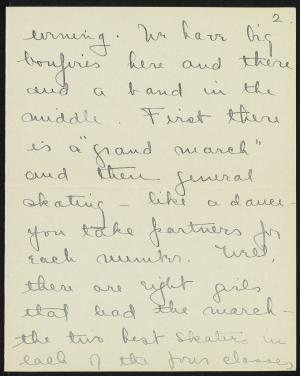 2.
evening. We have big
bonfires here and there
and a band in the
middle. First there
is a "grand march"
and then general
skating - like a dance -
you take partners for
each number. Well,
there are eight girls
that lead the march -
the two best skaters in
each of the four classes